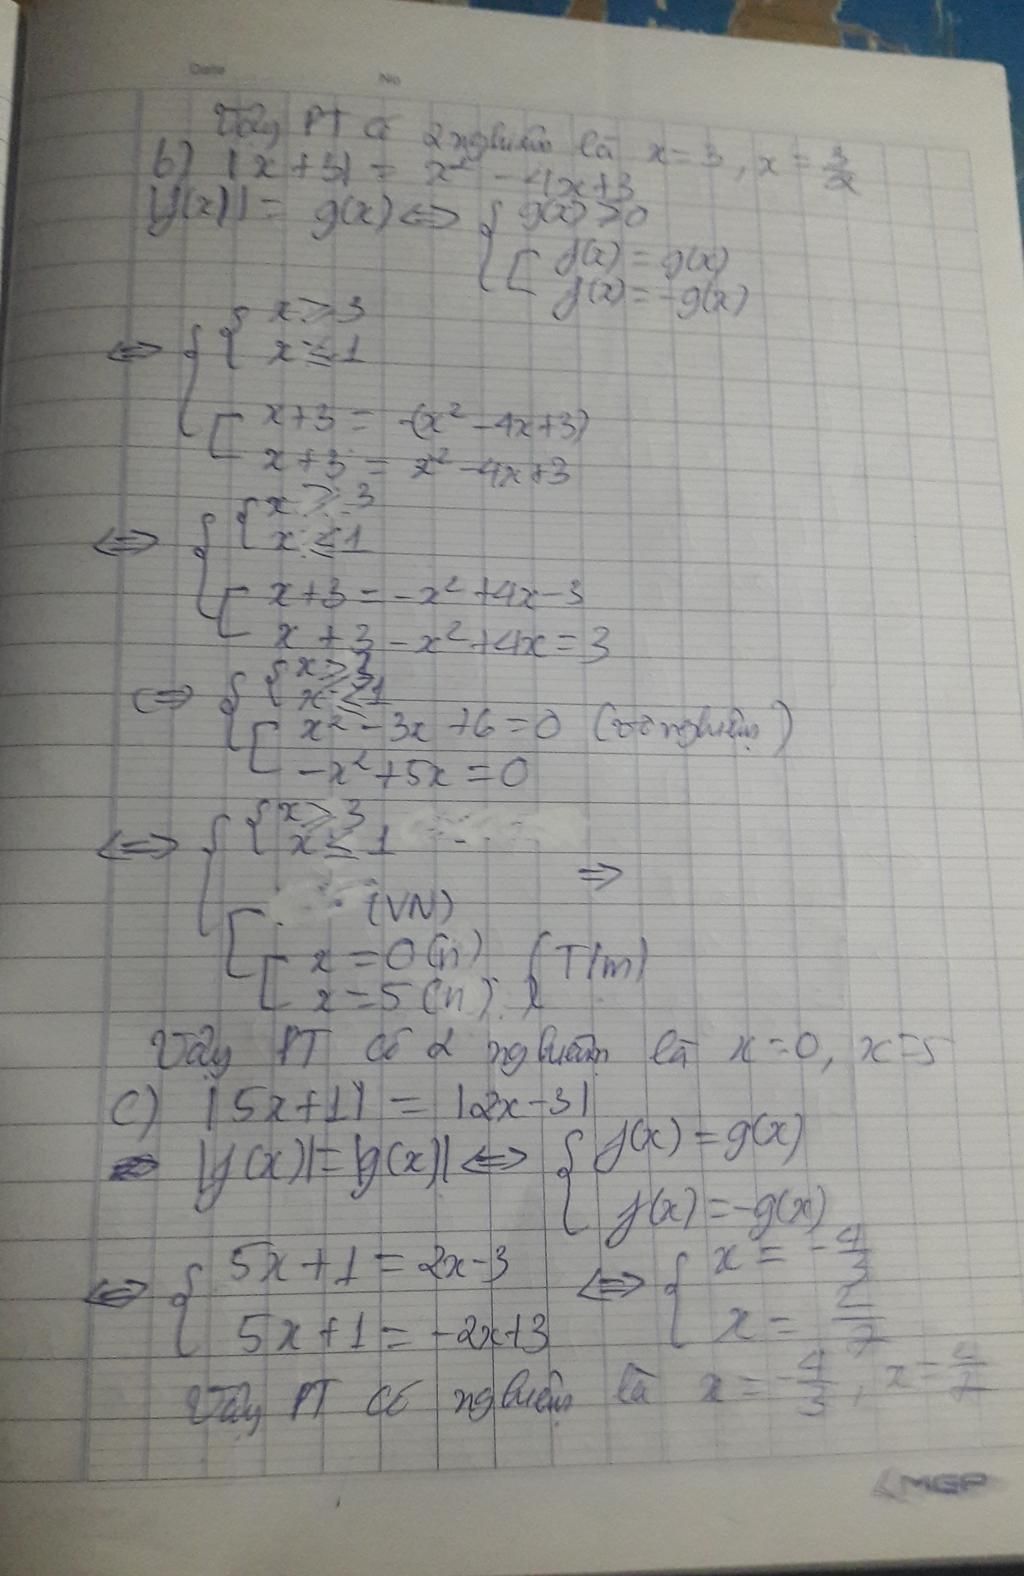 Date No
Vậy PT có 2 nghiệm là x = 3, x = 3/2
b) |x+3| = x² - 4x+3
|f(x)| = g(x) ⇔ { g(x) ≥ 0
[ f(x) = g(x)
f(x) = -g(x)
⇔ { { x ≥ 3
x ≤ 1
[ x+3 = -(x² - 4x+3)
x+3 = x² - 4x+3
⇔ { { x ≥ 3
x ≤ 1
[ x+3 = -x² +4x-3
x + 3 - x² +4x = 3
⇔ { { x ≥ 3
x ≤ 1
[ x² - 3x +6 = 0 (vô nghiệm)
-x² +5x = 0
⇔ { { x ≥ 3
x ≤ 1
⇒
[ (VN)
[ x = 0 (n) (T/m)
x = 5 (n)
Vậy PT có 2 nghiệm là x = 0, x = 5
c) |5x+1| = |2x-3|
|f(x)| = |g(x)| ⇔ { f(x) = g(x)
f(x) = -g(x)
⇔ { 5x+1 = 2x-3 ⇔ { x = -4/3
5x+1 = -2x+3 x = 2/7
Vậy PT có nghiệm là x = -4/3, x = 2/7
MGP